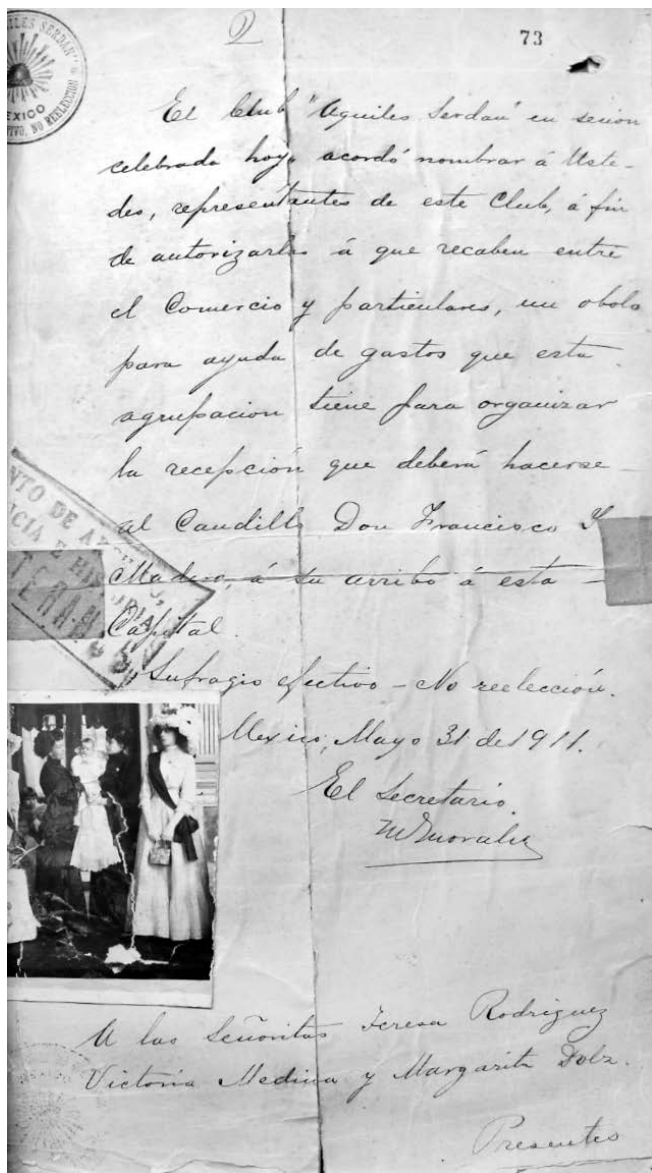 2
73
AQUILES SERDAN
MEXICO
NO REELECCION
El Club "Aquiles Serdan" en sesion
celebrada hoy, acordó nombrar á Uste-
des, representantes de este Club, á fin
de autorizarles á que recaben entre
el Comercio y particulares, un obolo
para ayuda de gastos que esta
agrupacion tiene para organizar
la recepción que deberá hacerse
al Caudillo Don Francisco I
Madero, á su arribo á esta
Capital.
Sufragio efectivo - No reelección.
Mexico, Mayo 31 de 1911.
El Secretario.
A las Señoritas Teresa Rodriguez
Victoria Medina y Margarita
Presentes